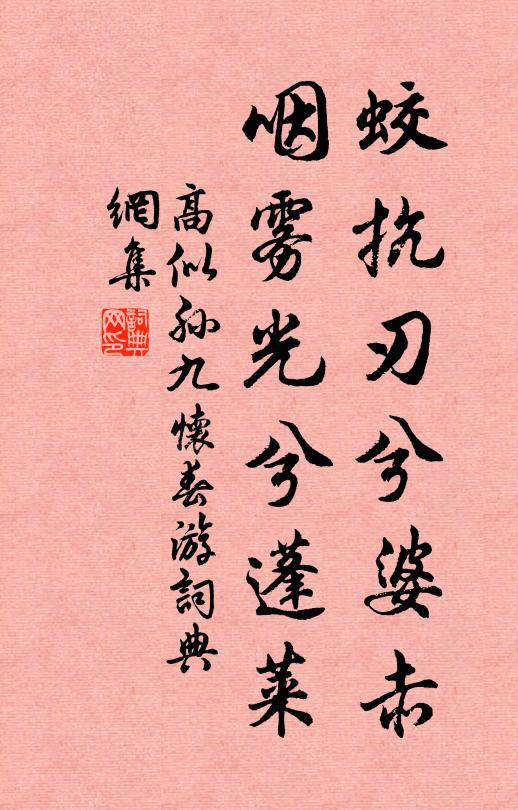 蛟抗刃兮婆赤
咽雾光兮蓬莱
高似孙九懷春游詞典
網集
詞典网印